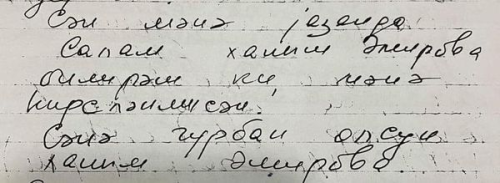 Сән мәнә јазанда
Салам ханим Әмирова
билирәм ки мәнә
нирсләнмисән
Сәнә гурбан олсун
ханим Әмирова